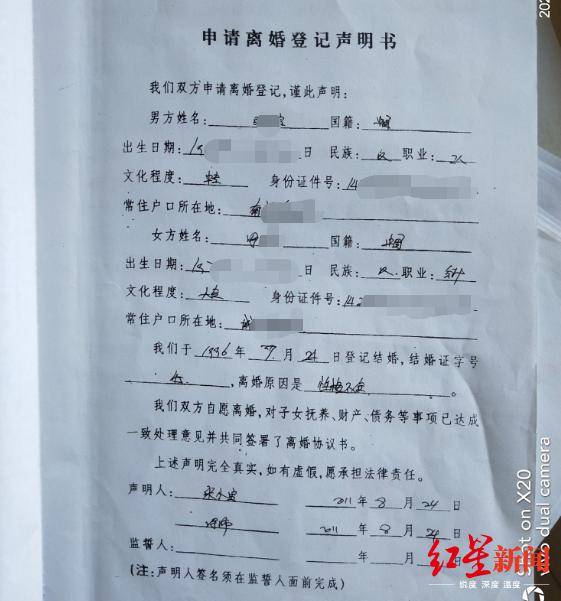 申请离婚登记声明书
我们双方申请离婚登记，谨此声明：
男方姓名： 国籍：中国
出生日期：19 日 民族：汉 职业：工人
文化程度： 身份证件号：14
常住户口所在地：
女方姓名： 国籍：中国
出生日期：19 日 民族：汉 职业：会计
文化程度：大专 身份证件号：142
常住户口所在地：
我们于 1996 年 月 24 日登记结婚，结婚证字号
，离婚原因是 性格不合 。
我们双方自愿离婚，对子女抚养、财产、债务等事项已达成
一致处理意见并共同签署了离婚协议书。
上述声明完全真实，如有虚假，愿承担法律责任。
声明人： 2011 年 8 月 24 日
2011 年 8 月 24 日
监誓人： 年 月 日
(注：声明人签名须在监誓人面前完成)
红星新闻
锐度 深度 温度
ot on X20
dual camera
202